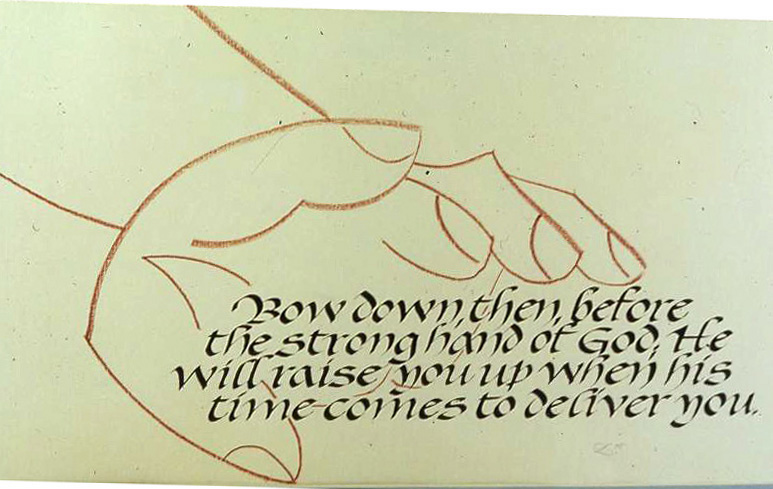 Bow down, then, before
the strong hand of God. He
will raise you up when his
time comes to deliver you.